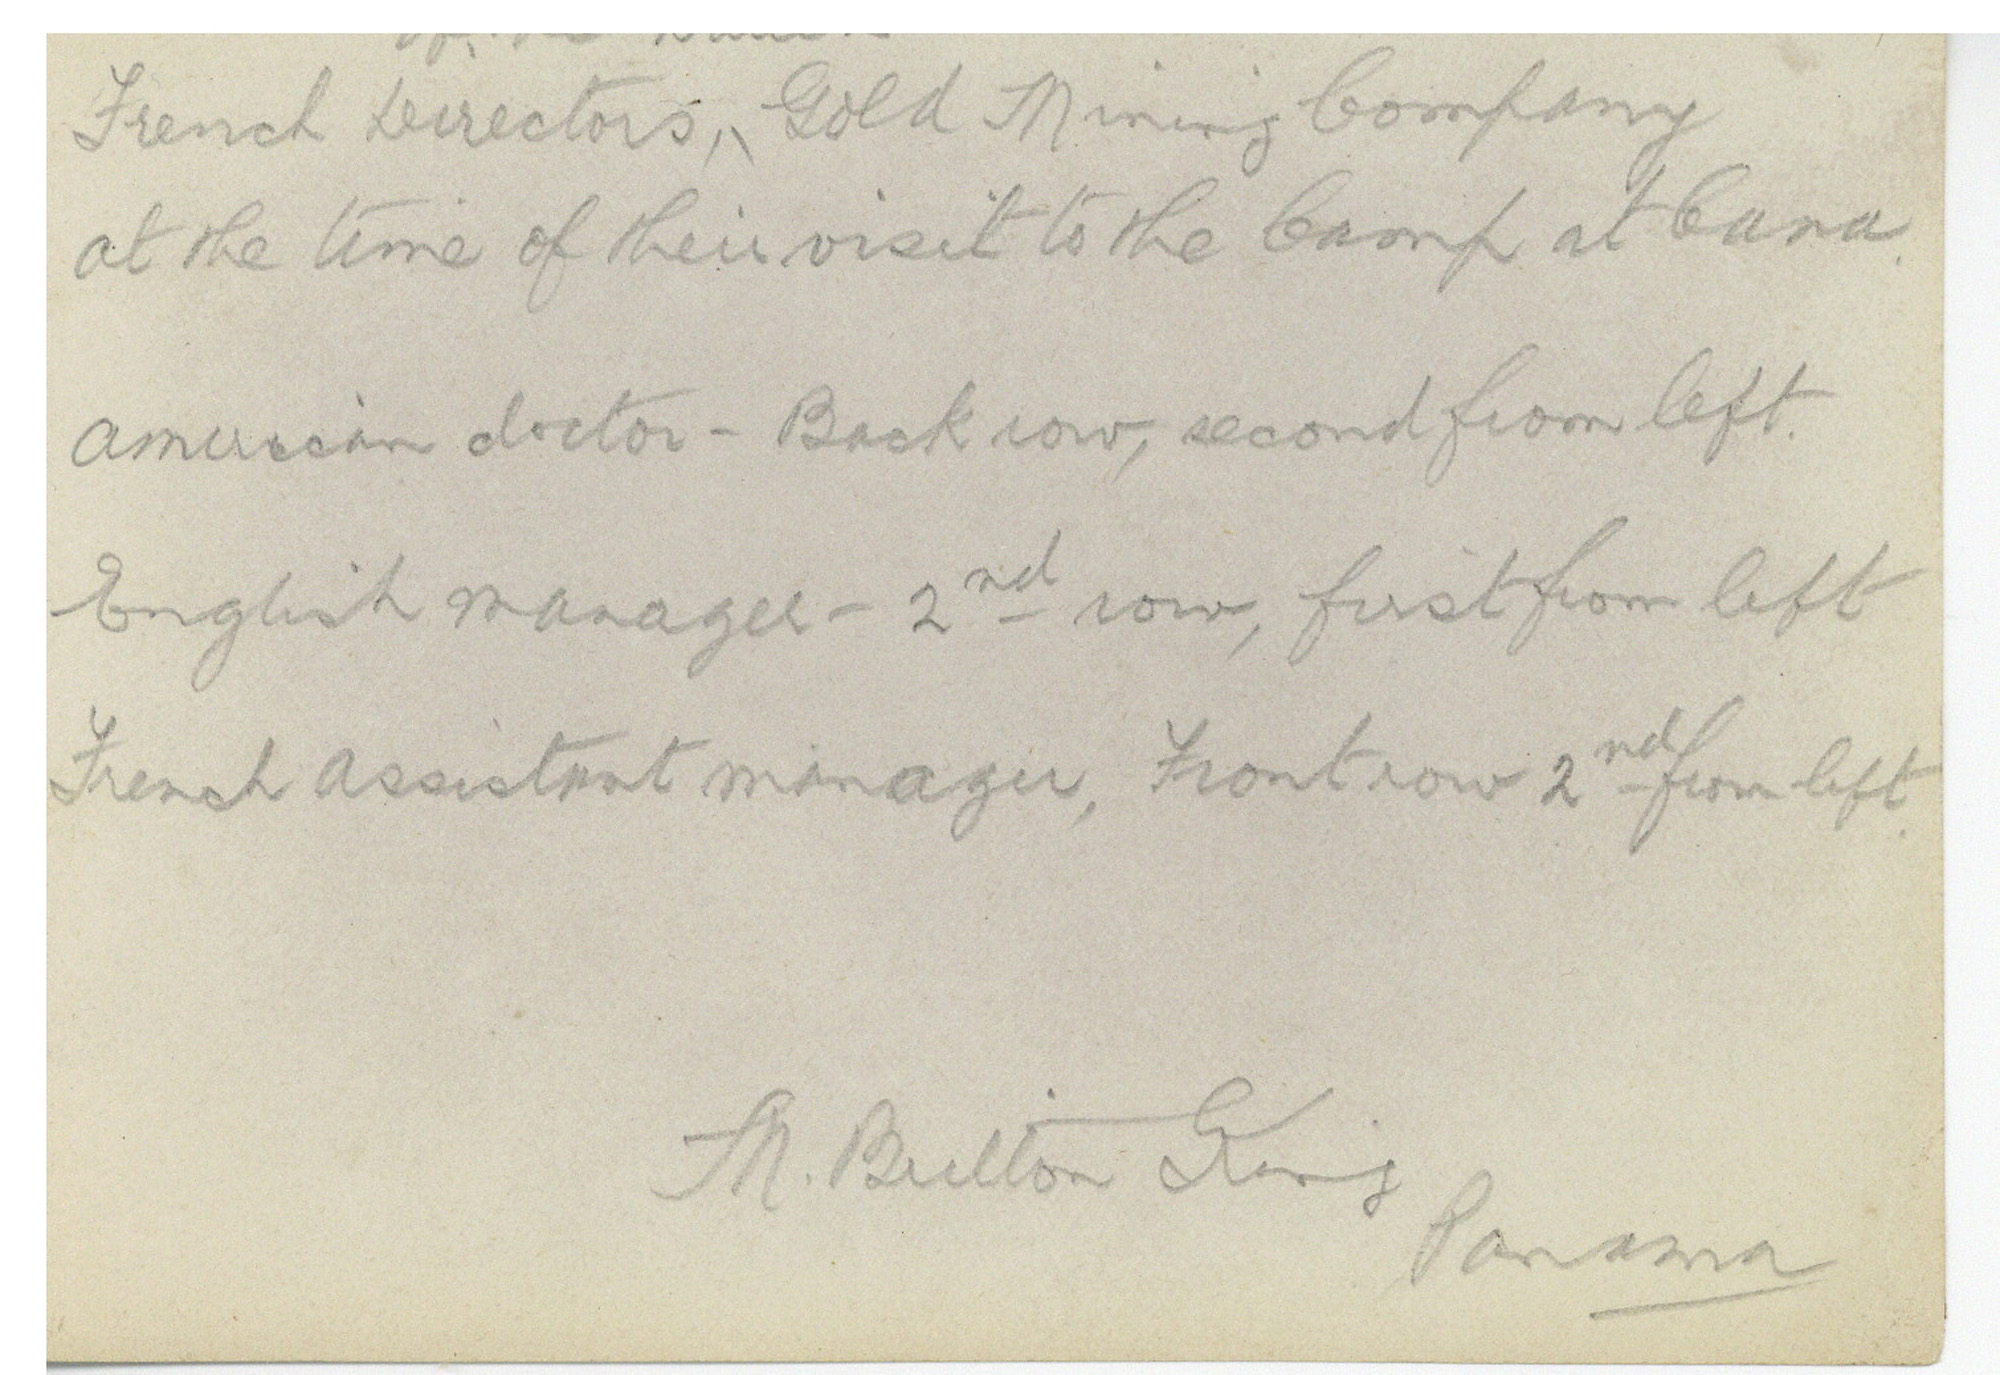 French Directors, Gold Mining Company
at the time of their visit to the Camp at Cana.
American doctor - Back row, second from left.
English manager - 2nd row, first from left
French Assistant manager, Front row 2nd from left.
M. Bulton King
Panama